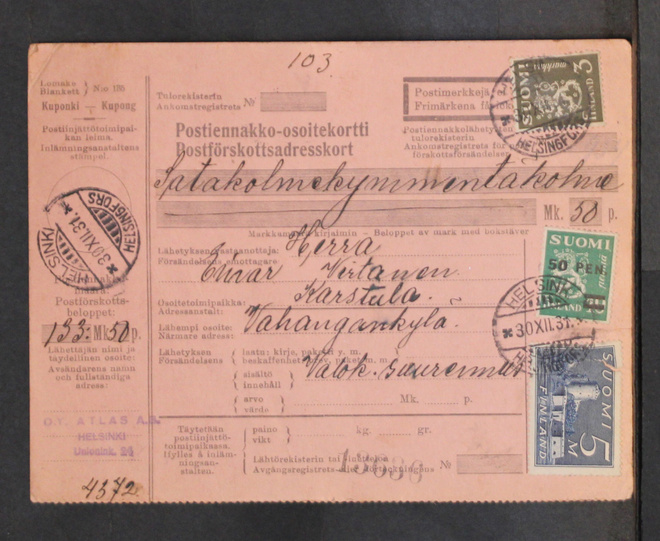 103.
Lomake
Blankett } N:o 170
Kuponki — Kupong
Postiinjättötoimipaikan leima.
Inlämningsanstaltens stämpel.
HELSINKI HELSINGFORS
30.XII.31.
Postförskotts-
beloppet:
133: Mk 50 p.
Lähettäjän nimi ja
täydellinen osoite:
Avsändarens namn
och fullständiga
adress:
O.Y. ATLAS A.B.
HELSINKI
Unionink. 24
4372
Tulorekisterin
Ankomstregistrets } №
Postimerkkejä
Frimärkena
Postiennakko-osoitekortti
Postförskottsadresskort
Postiennakkolähetyksen
tulorekisterin
Ankomstregistrets
förskottsförsändelser
Satakolmekymmentäkolme
Mk. 50 p.
Markkamäärä kirjaimin - Beloppet av mark med bokstäver
Lähetyksen vastaanottaja:
Försändelsens emottagare:
Herra
Einar Vertanen
Osoitetoimipaikka:
Adressanstalt:
Karstula.
Lähempi osoite:
Närmare adress:
Vahangankylä.
Lähetyksen
Försändelsens
laatu: kirje, paketti y. m.
beskaffenhet: brev, paket m. m.
Valok. suurennus
sisältö
innehåll
arvo
värde
Mk. p.
Täytetään
postiinjättö-
toimipaikassa.
Ifylles å inläm-
ningsan-
stalten.
paino
vikt
kg. gr.
Lähtörekisterin
Avgångsregistrets
№
SUOMI
FINLAND
3
HELSINGFORS
SUOMI
50 PEN.
FINLAND
HELSINKI
30.XII.31.
SUOMI
FINLAND
5 M